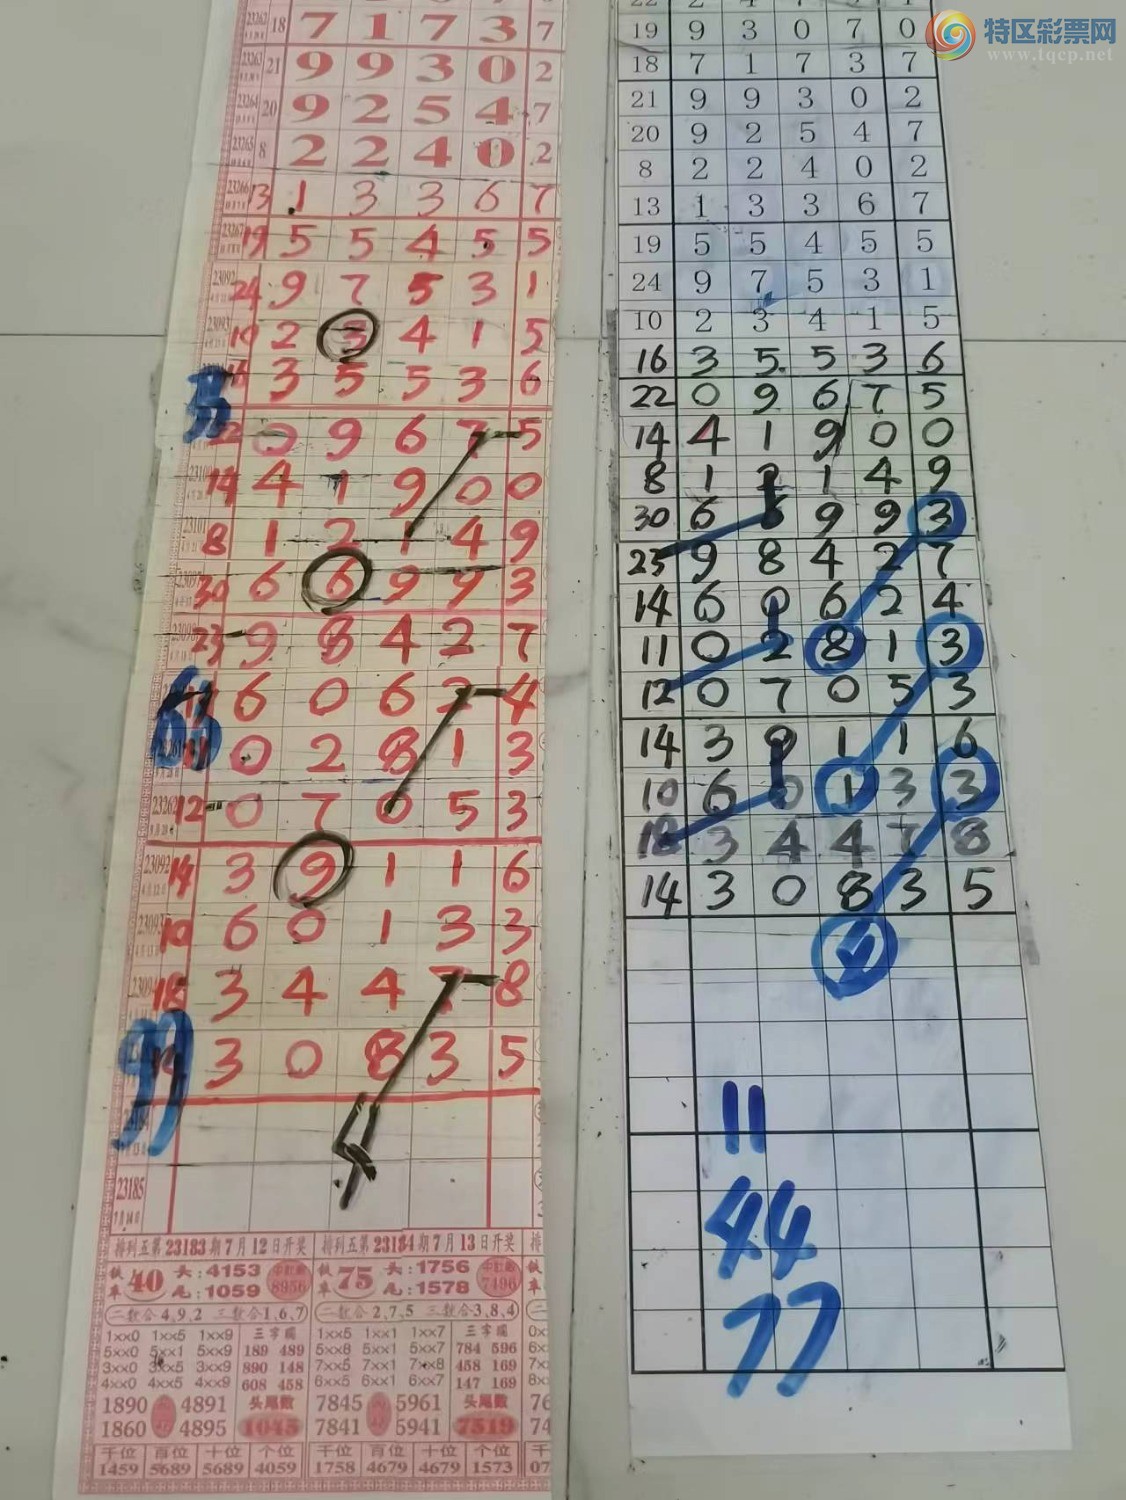 特区彩票网
www.tqcp.net
23262 18 7 1 7 3 7
23263 21 9 9 3 0 2
23264 20 9 2 5 4 7
23265 8 2 2 4 0 2
23266 13 1 3 3 6 7
23267 19 5 5 4 5 5
23092 24 9 7 5 3 1
23093 10 2 3 4 1 5
16 3 5 5 3 6
33
22 0 9 6 7 5
14 4 1 9 0 0
23101 8 1 2 1 4 9
30 6 6 9 9 3
23 9 8 4 2 7
6 0 6 2 4
63
11 0 2 8 1 3
23262 12 0 7 0 5 3
23092 14 3 9 1 1 6
10 6 0 1 3 3
18 3 4 4 7 8
3 0 8 3 5
99
4
23185
排列五第23183期7月12日开奖
铁率 40 头:4153 尾:1059 8956
二数合4,9,2 三数合1,6,7
1xx0 1xx5 1xx9 三字圈
5xx0 5xx1 5xx9 189 489
3xx0 3xx5 3xx9 890 148
4xx0 4xx5 4xx9 608 458
1890 4891 头尾数
1860 4895 1045
千位 百位 十位 个位
1459 5689 5689 4059
排列五第23184期7月13日开奖
铁率 75 头:1756 尾:1578 7496
二数合2,7,5 三数合3,8,4
1xx5 1xx1 1xx7 三字圈
5xx8 5xx1 5xx7 784 596
7xx5 7xx1 7xx8 458 169
6xx5 6xx1 6xx7 147 169
7845 5961 头尾数
7841 5941 7519
千位 百位 十位 个位
1758 4679 4679 1573
19 9 3 0 7 0
18 7 1 7 3 7
21 9 9 3 0 2
20 9 2 5 4 7
8 2 2 4 0 2
13 1 3 3 6 7
19 5 5 4 5 5
24 9 7 5 3 1
10 2 3 4 1 5
16 3 5 5 3 6
22 0 9 6 7 5
14 4 1 9 0 0
8 1 2 1 4 9
30 6 6 9 9 3
23 9 8 4 2 7
14 6 0 6 2 4
11 0 2 8 1 3
12 0 7 0 5 3
14 3 9 1 1 6
10 6 0 1 3 3
18 3 4 4 7 8
14 3 0 8 3 5
11
44
77